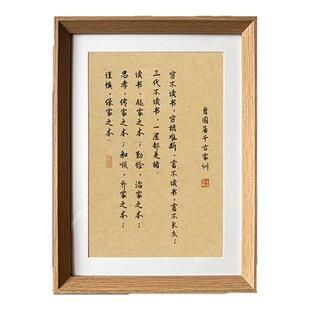 曾国藩千古家训
穷不读书，穷根难断，富不读书，富不长久；
三代不读书，一屋都是猪。
读书，起家之本；勤俭，治家之本；
忠孝，传家之本；和顺，齐家之本；
谨慎，保家之本。